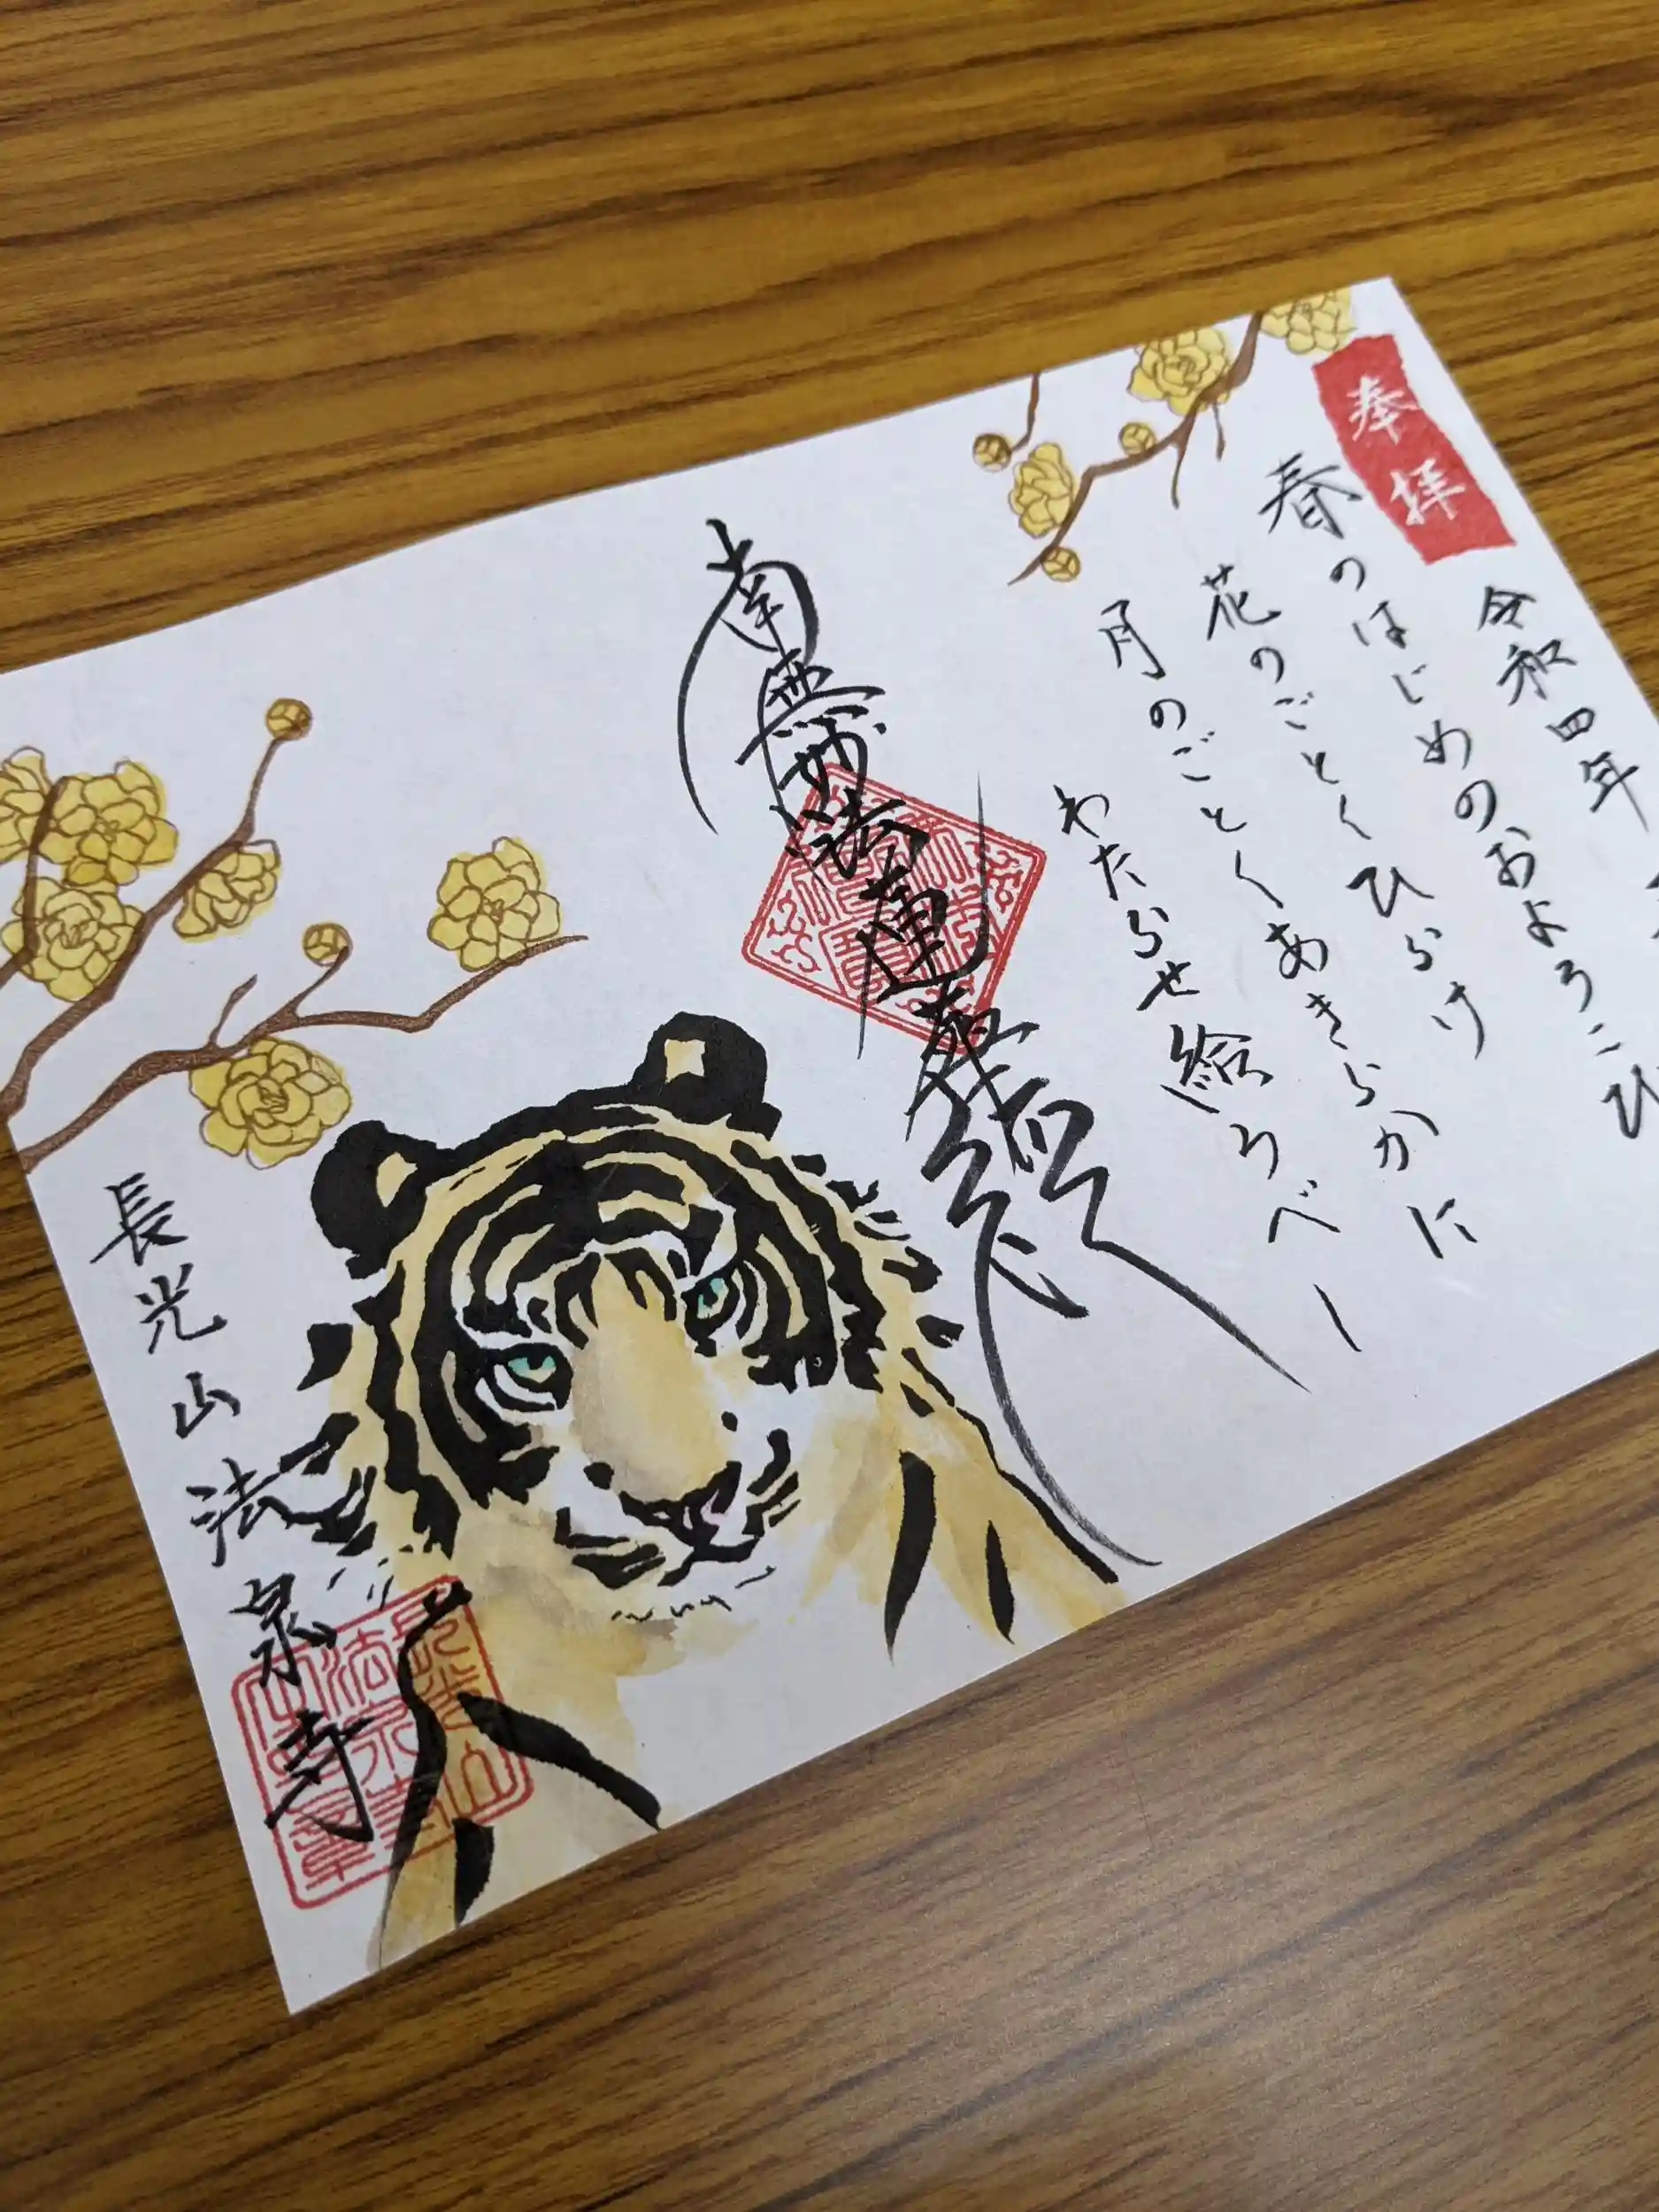 奉拝
令和四年
春のはじめのおよろこひ
花のごとくひらけ
月のごとくあきらかに
わたらせ給うべし
南無妙法蓮華経
長光山法泉寺